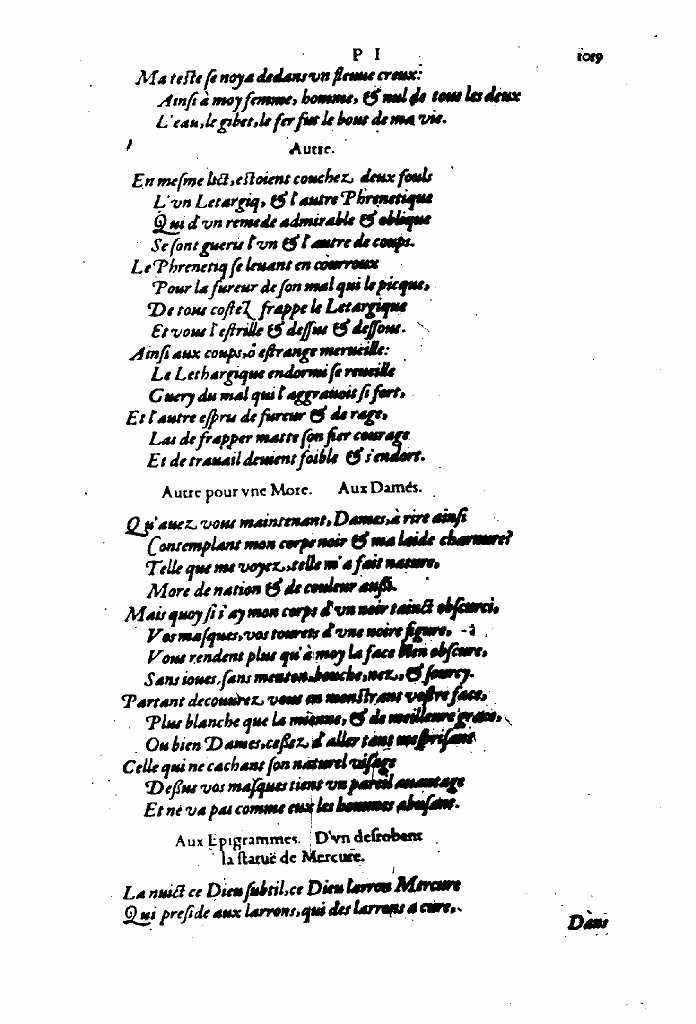 P I 1019
Ma teste se noya dedans vn fleuue creux:
Ainsi à moy femme, homme, & nul de tous les deux
L'eau, le gibet, le fer fut le bout de ma vie.
Autre.
En mesme lict, estoient couchez deux fouls
L'vn Letargiq, & l'autre Phrenetique
Qui d'vn remede admirable & oblique
Se sont gueris l'vn & l'autre de coups.
Le Phrenetiq se leuant en courroux
Pour la fureur de son mal qui le picque,
De tous costez frappe le Letargique
Et vous l'estrille & dessus & dessous.
Ainsi aux coups, ô estrange merueille:
Le Lethargique endormi se reueille
Guery du mal qui l'aggrauoit si fort,
Et l'autre espris de fureur & de rage,
Las de frapper matte son fier courage
Et de trauail deuient foible & s'endort.
Autre pour vne More. Aux Damés.
Qu'auez vous maintenant, Dames, à rire ainsi
Contemplans mon corps noir & ma laide charnure?
Telle que me voyez, telle m'a fait nature,
More de nation & de couleur aussi.
Mais quoy si i'ay mon corps d'vn noir tainct obscurci,
Vos masques, vos tourets d'vne noire figure,
Vous rendent plus qu'à moy la face bien obscure,
Sans ioues, sans menton, bouche, nez, & sourcy.
Partant decouurez vous en monstrant vostre face,
Plus blanche que la mienne, & de meilleure grace,
Ou bien Dames, cessez d'aller tant mesprisant
Celle qui ne cachant son naturel visage
Dessus vos masques tient vn pareil auantage
Et ne va pas comme eux les hommes abusant.
Aux Epigrammes. D'vn desrobant
la statuë de Mercure.
La nuict ce Dieu subtil, ce Dieu larron Mercure
Qui preside aux larrons, qui des larrons a cure,
Dans